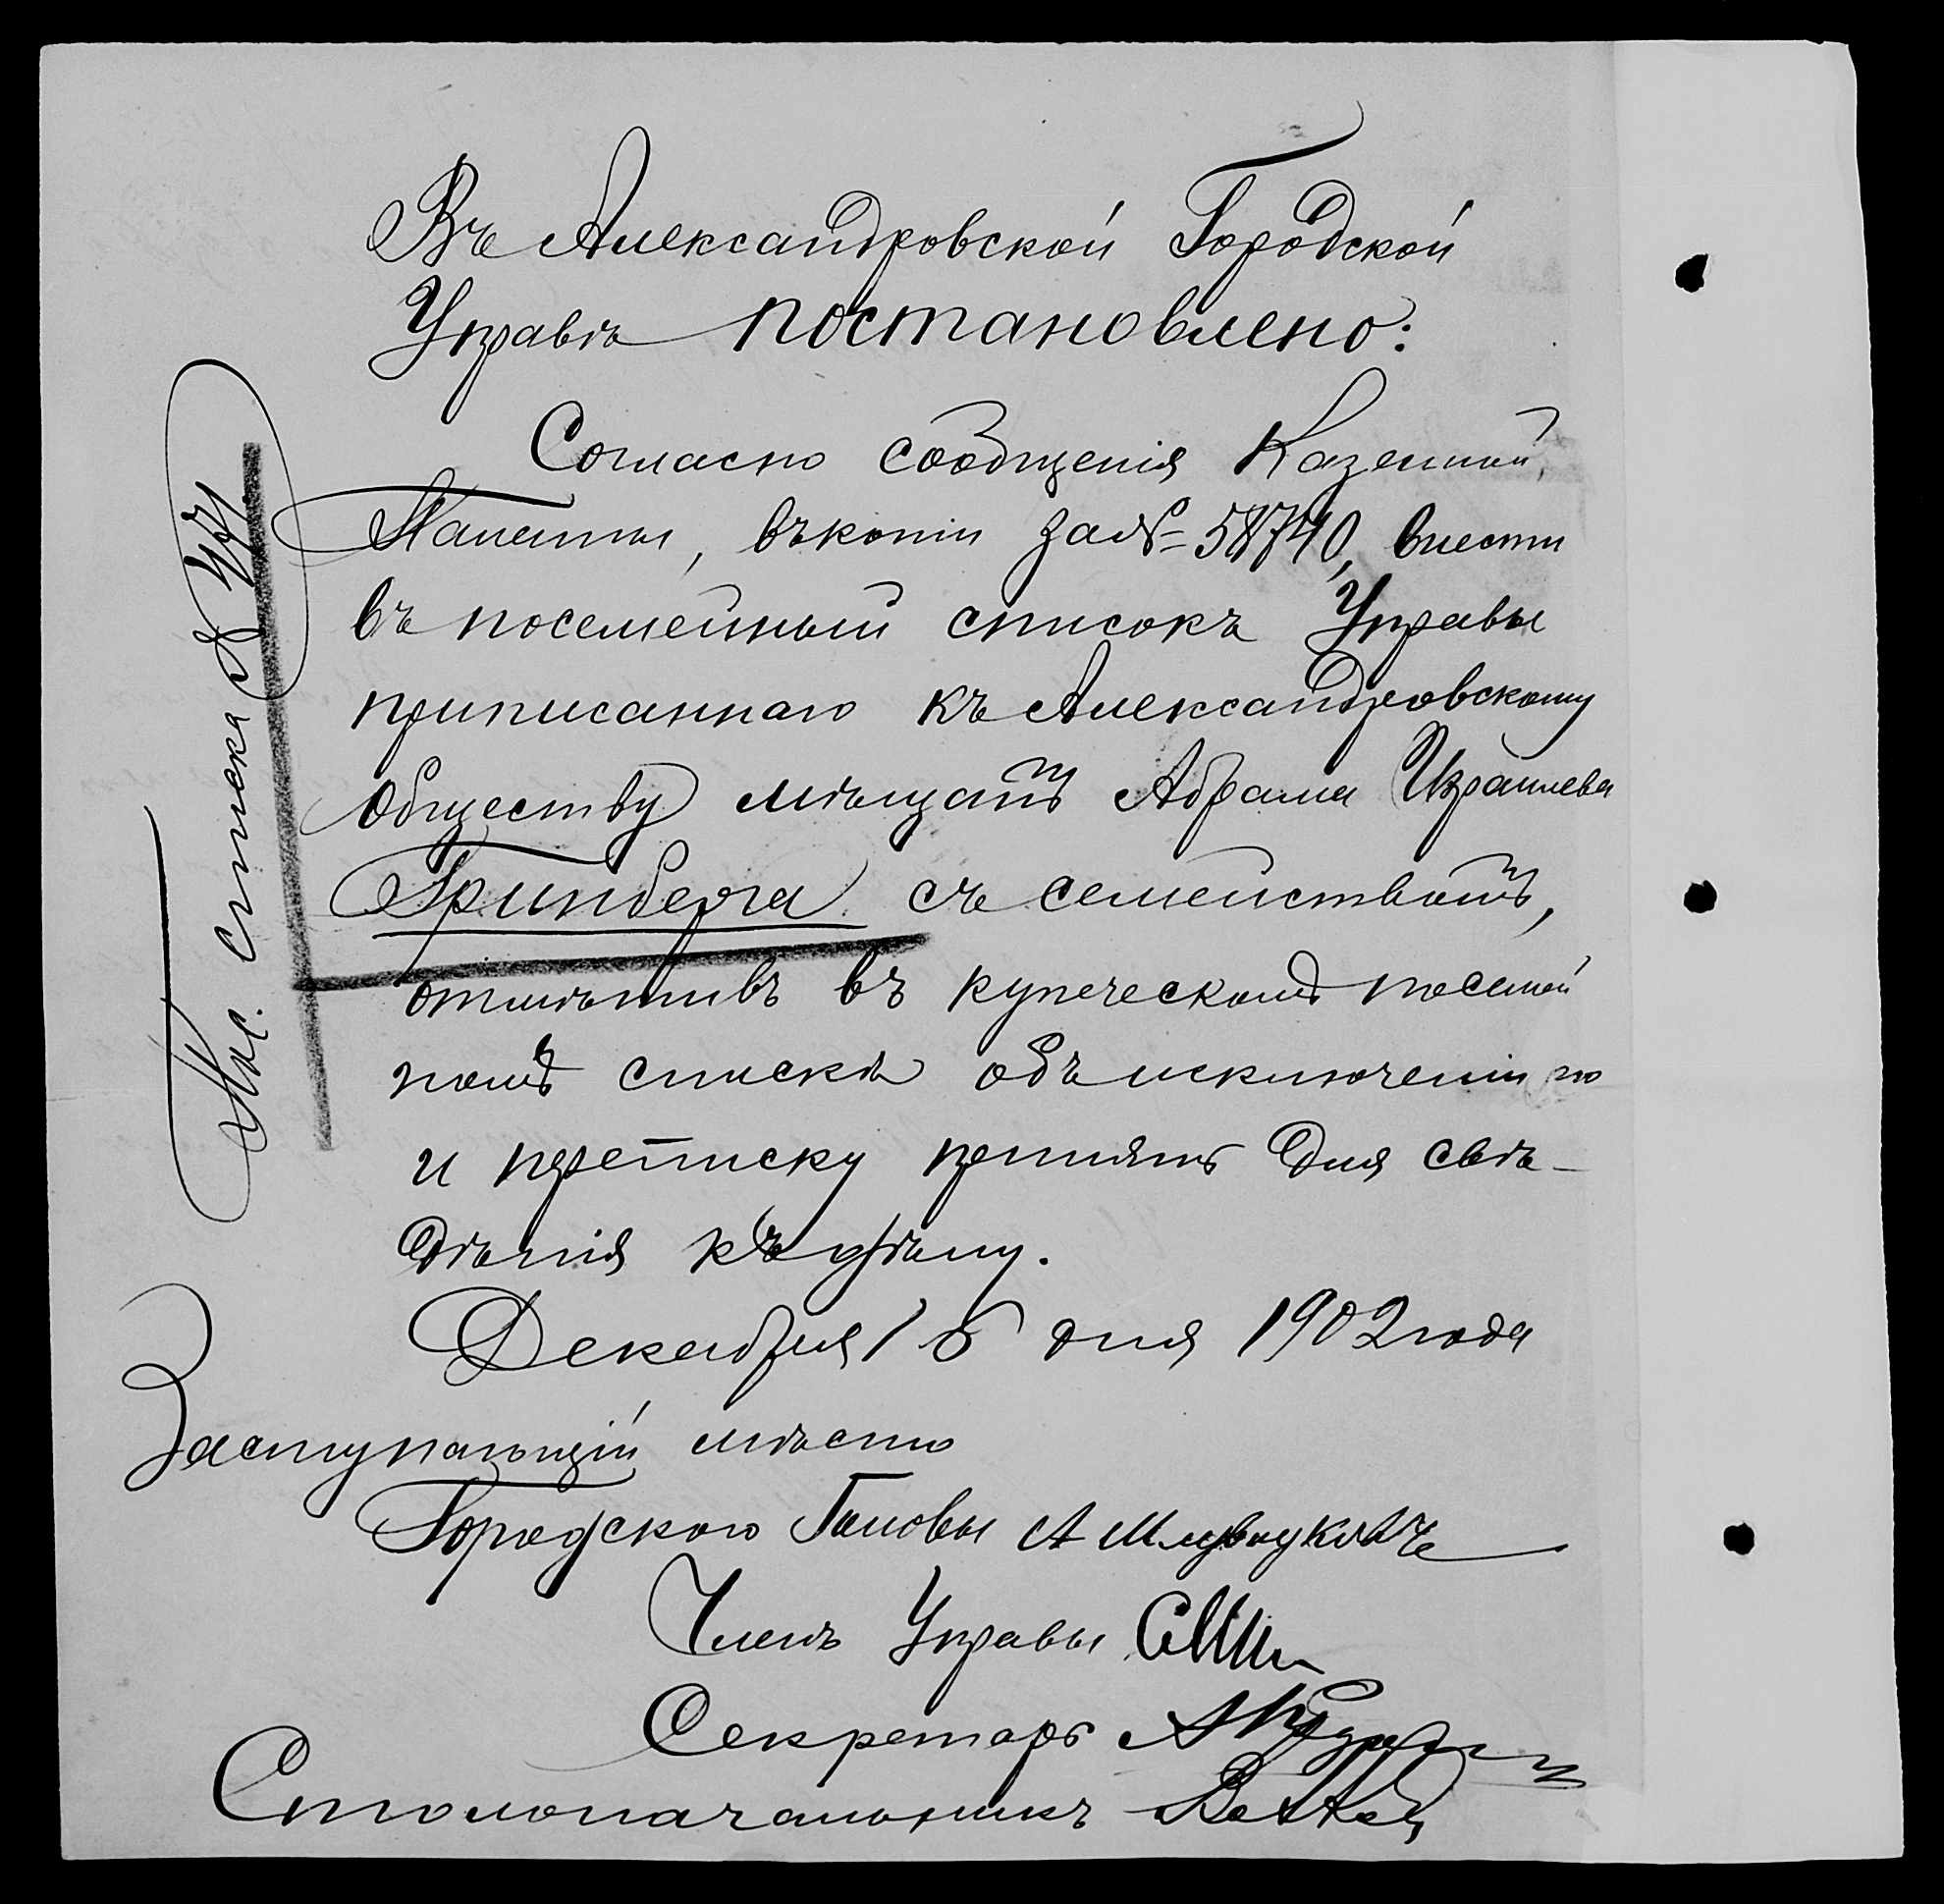 Въ Александровской Городской
Управѣ постановлено:
Согласно сообщенія Казенной
Палаты, въ копіи за № 58740, внести
въ посемейный списокъ Управы
приписаннаго къ Александровскому
обществу мѣщанъ Абрама Израилева
Гринберга съ семействомъ,
отмѣтивъ въ купеческомъ посемей
номъ спискѣ объ исключеніи его
и переписку принять для свѣ-
дѣнія къ дѣлу.
Декабря 16 дня 1902 года
Заступающій мѣсто
Городского Головы А
Членъ Управы
Секретарь А
Столоначальникъ
Пос. списка №